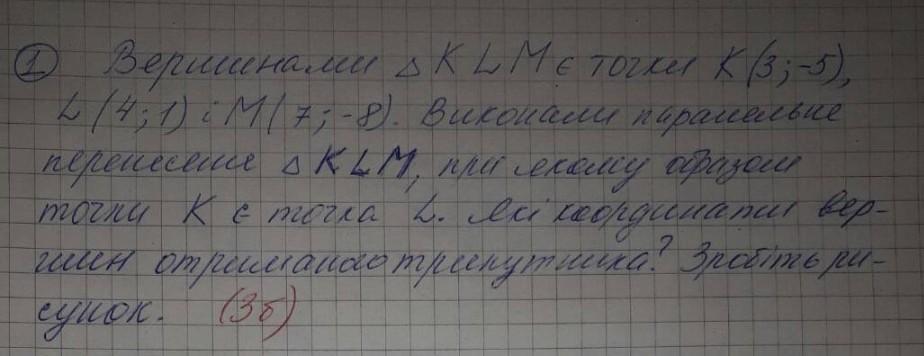 1 Вершинами △KLM є точки K(3;-5),
L(4;1) і M(7;-8). Виконали паралельне
перенесенне △KLM, при якому образом
точки K є точка L. Які координати вер-
шин отриманого трикутника? Зробіть ри-
сунок. (3б)